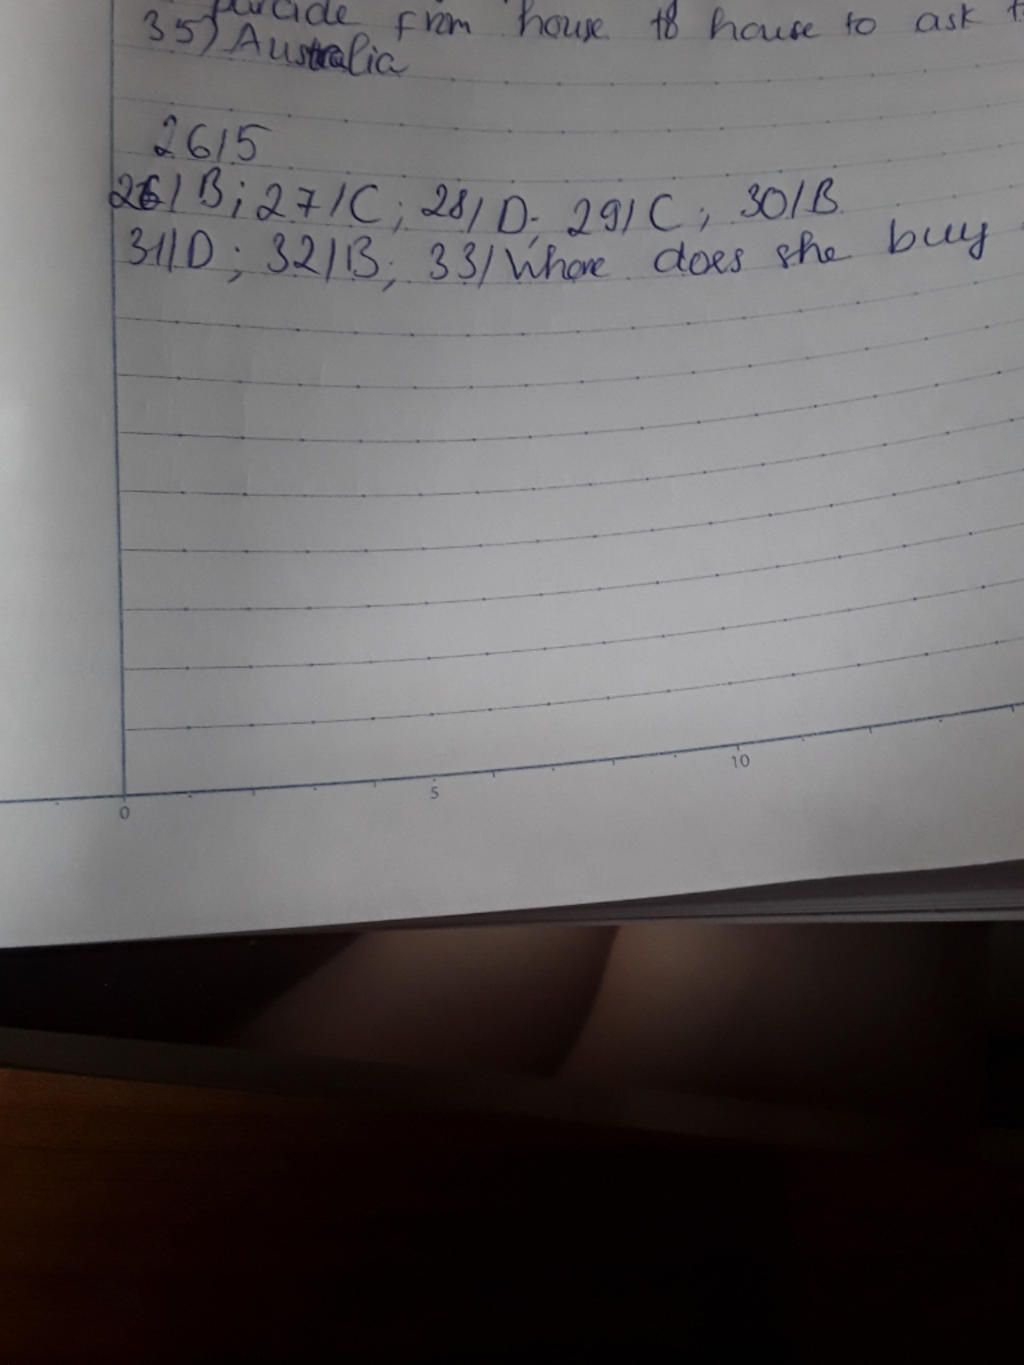 parade from house to house to ask
35) Australia
26/5
26/ B; 27/C; 28/ D; 29/ C; 30/B
31/D; 32/B; 33/ Where does she buy
0 5 10